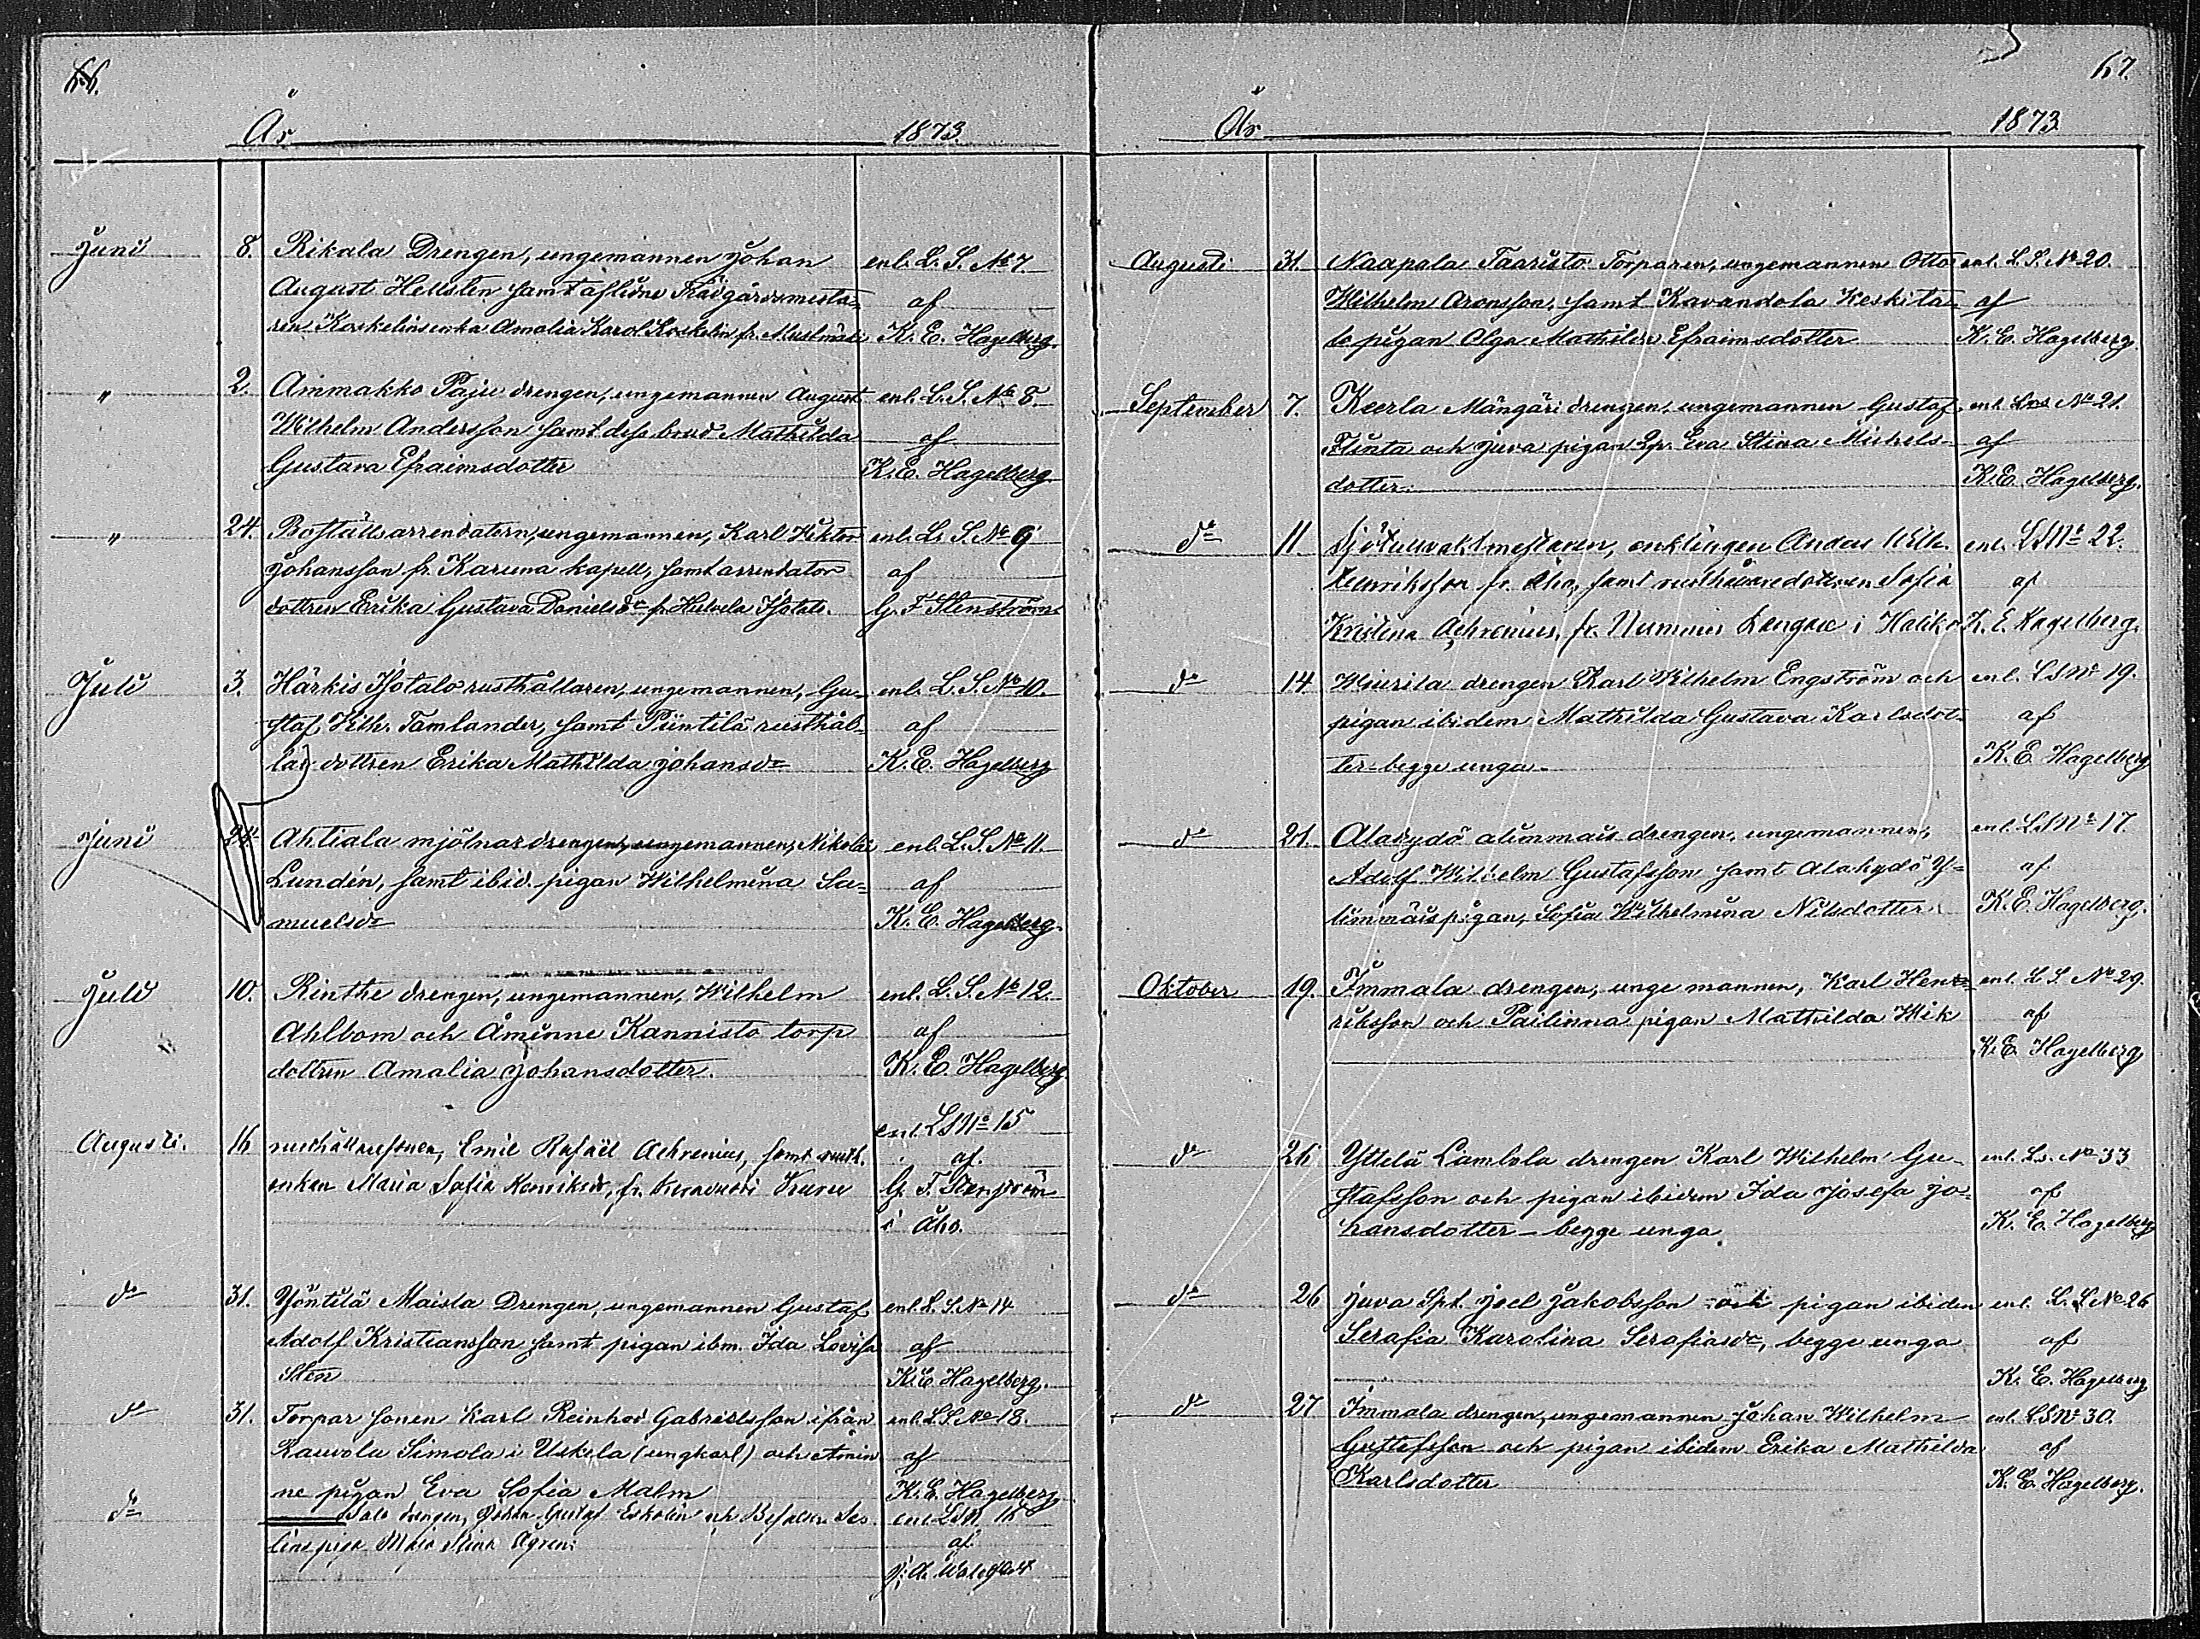 66.
År 1873
Juni 8. Rikala Drengen, ungemannen Johan enl. L. S. No 7.
August Hellsten samt aflidne Trädgårdsmesta= af
ren Koskelins enka Amalia Karol. Koskelin fr. K. E. Hagelberg.
" 2. Ammakko Paju drengen, ungemannen August enl. L. S. No 8.
Wilhelm Andersson samt dess brud Mathilda af
Gustava Efraimsdotter K. E. Hagelberg
" 24. Boställsarrendatorn, ungemannen, Karl Viktor enl. L. S. No 9
Johansson fr. Karuna kapell, samt arrendator af
dottren Erika Gustava Daniels dr fr. Isotalo. G. F. Stenström
Juli 3. Härkis Isotalo rusthållaren, ungemannen, Gu- enl. L. S. No 10.
staf Vilh. Tamlander, samt Püntilä rusthål- af
lar dottren Erika Mathilda Johansdr K. E. Hagelberg
Juni 24. Ahtiala mjölnar drengen, ungemannen, Nikolai enl. L. S. No 11.
Lundén, samt ibid. pigan Wilhelmina Sa= af
muelsdr K. E. Hagelberg.
Juli 10. Rinthe drengen, ungemannen, Wilhelm enl. L. S. No 12.
Ahlbom och Åminne Kannisto torp af
dottren Amalia Johansdotter. K. E. Hagelberg
Augusti. 16 rusthållaresonen, Emil Rafaël Achrenius, samt rusth. enl. LS No 15
enkan Maria Sofia Henriksdr, fr. af.
G. F. Stenström
i Åbo.
do 31. Yöntilä Maisla Drengen, ungemannen Gustaf enl. L. S. No 14
Adolf Kristiansson samt pigan ibm. Ida Lovisa af
Sten K. E. Hagelberg.
do 31. Torpar sonen Karl Reinhod Gabrielsson ifrån enl. L S No 18.
Rauvola Simola i Uskela (ungkarl) och Åmin af
ne pigan Eva Sofia Malm K. E. Hagelberg
do Salo drengen, Johan Gustaf Eskolin och enl. LSN. 16
pigan Maja Stina Ågren. af

67.
År 1873
Augusti 31. Naapala Taaristo Torparen, ungemannen Otto enl. L. S. No 20.
Wilhelm Aronsson, samt Kavandola Keskita- af
lo pigan Olga Mathilda Efraimsdotter K. E. Hagelberg
September 7. Keerla Mängäri drengen, ungemannen Gustaf enl. No 21.
Flinta och Juva pigan Eva Stina Michels- af
dotter. K. E. Hagelberg.
do 11 enklingen Anders Wilh. enl. LS No 22.
Henriksson fr. Åbo, samt rusthållaredottren Sofia af
Kristina Achrenius, fr. Nummis i Haliko K. E. Hagelberg.
do 14 Wiurila drengen Karl Wilhelm Engström och enl. LS No 19.
pigan ibidem Mathilda Gustava Karlsdot- af
ter - begge unga - K. E. Hagelberg
do 21. Alakydö alimmais drengen, ungemannen, enl. LS No 17.
Adolf Wilhelm Gustafsson samt Alakydö Y- af
limmäis pigan, Sofia Wilhelmina Nilsdotter K. E. Hagelberg.
Oktober 19. Immala drengen, unge mannen, Karl Hen- enl. L. S. No 29.
riksson och Pailinna pigan Mathilda Wik af
K. E. Hagelberg
do 26 Ylttelä Lambola drengen Karl Wilhelm Gu- enl. L. S. No 33
stafsson och pigan ibidem Ida Josefa Jo- af
hansdotter - begge unga. K. E. Hagelberg
do 26 Juva Spt. Joel Jakobsson och pigan ibidem enl. L. S No 26
Serafia Karolina Serafiasdr, begge unga af
K. E. Hagelberg
do 27 Immala drengen, ungemannen Johan Wilhelm enl. LS No 30.
Gustafsson och pigan ibidem Erika Mathilda af
Karlsdotter K. E. Hagelberg.